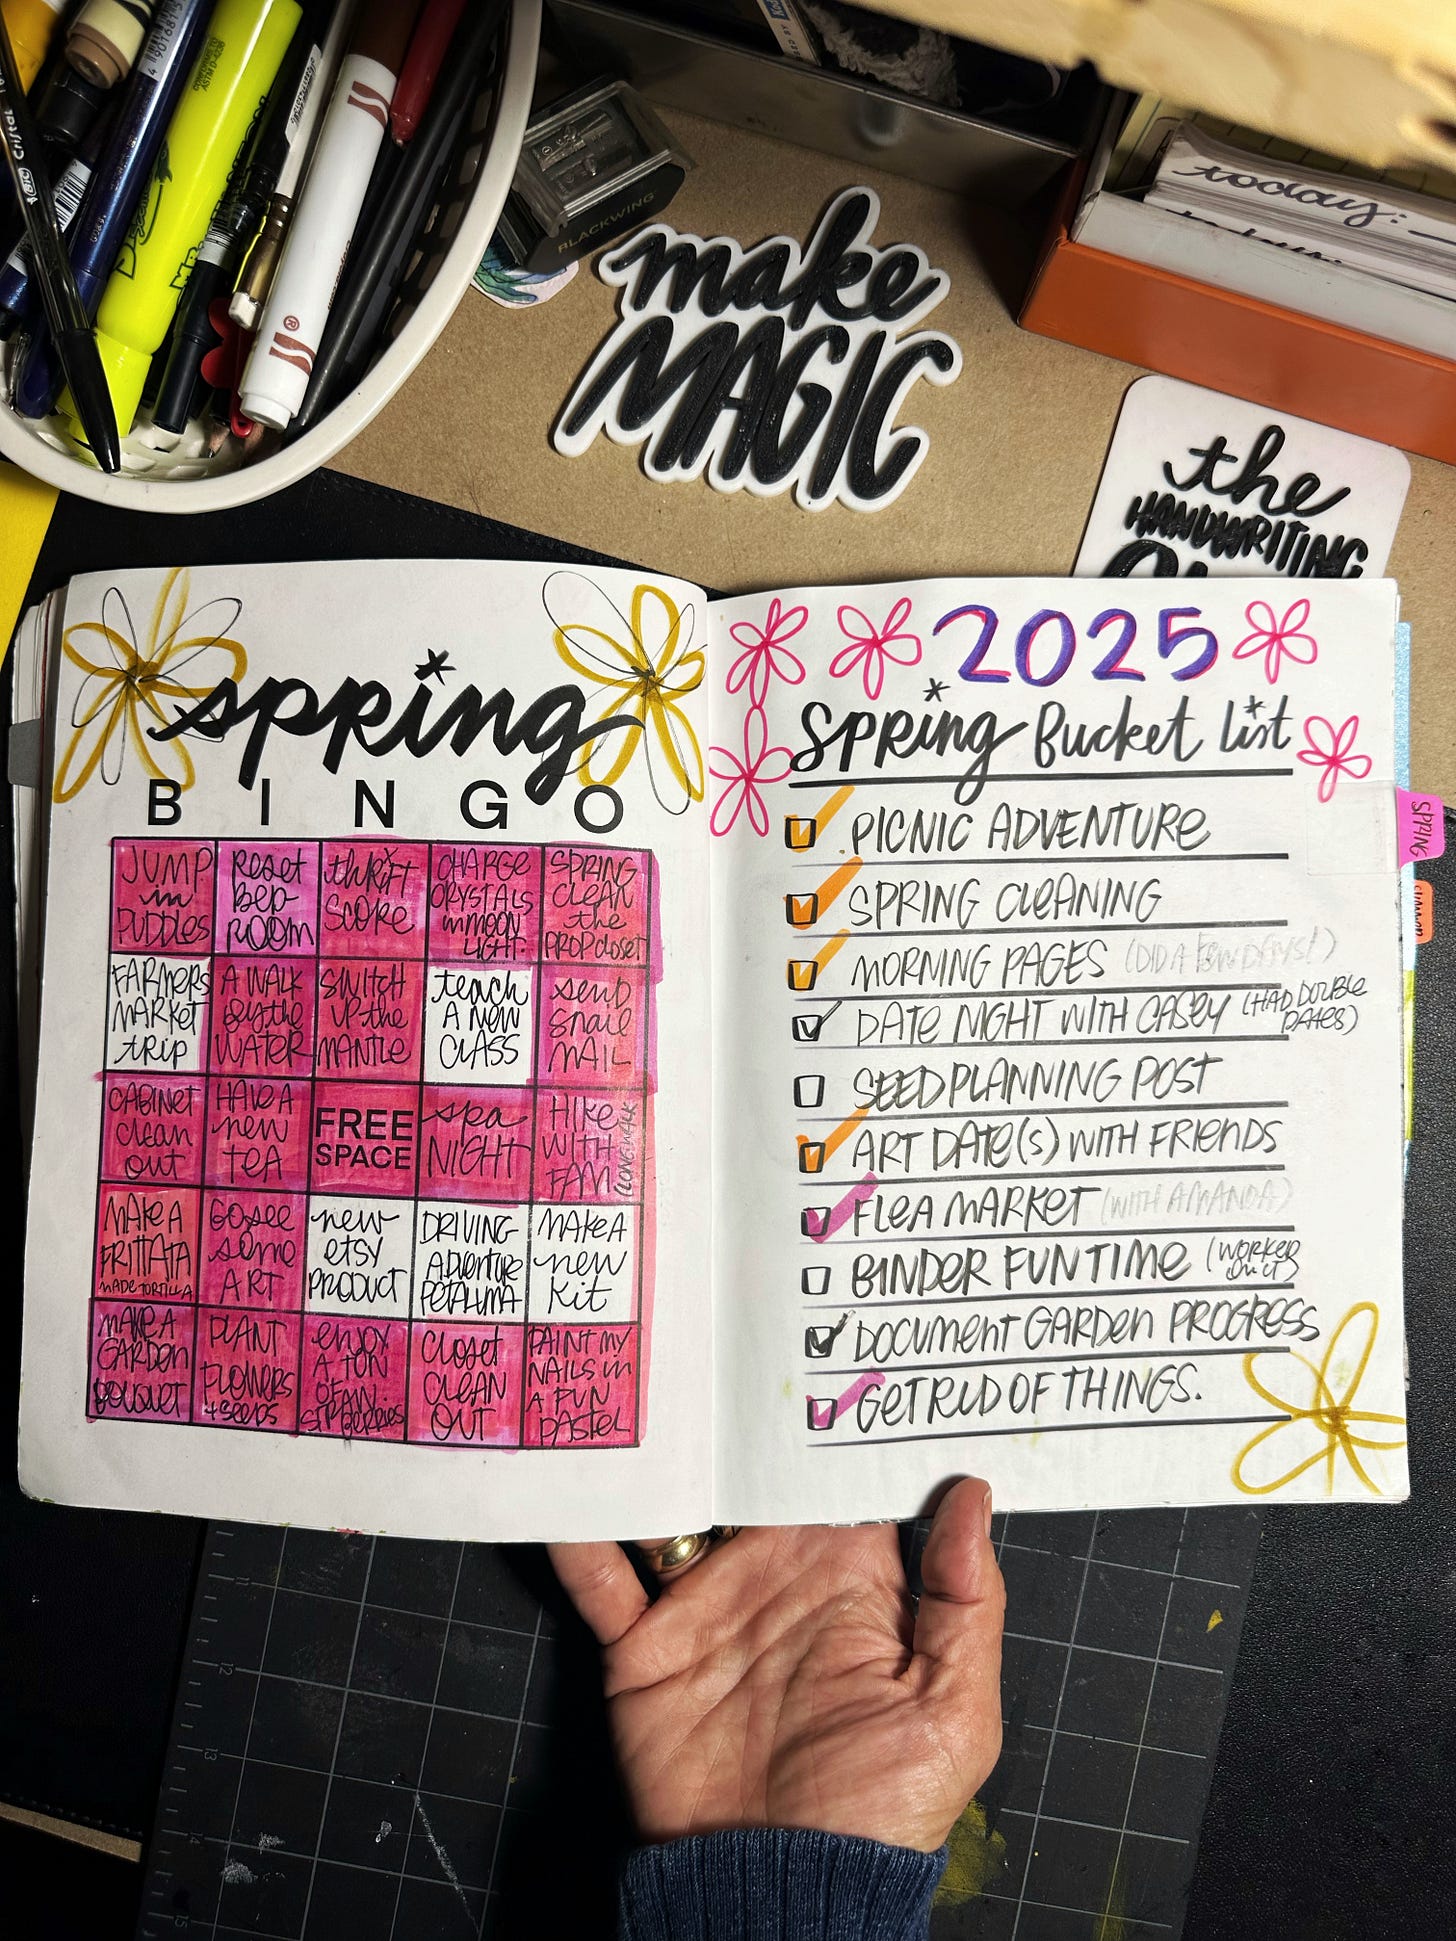 BIC Cristal
BLACKWING
make
MAGIC
today:
the
HANDWRITING
spring
B I N G O
JUMP
in
PUDDLES
Reset
BED-
ROOM
thrift
SCORE
CHARGE
CRYSTALS
in MOON
LIGHT.
SPRING
CLEAN
the
PROP closet
FARMERS
MARKET
trip
A WALK
by the
WATER
SWITCH
UP the
MANTLE
teach
A NEW
CLASS
send
snail
MAIL
CABINET
clean
out
HAVE A
new
TEA
FREE
SPACE
spa
NIGHT
HIKE
WITH
FAM
(LONG WALK
MAKE A
FRITTATA
MADE TORTILLA
GO see
some
ART
new
etsy
PRODUCT
DRIVING
ADVENTURE
PETALUMA
MAKE A
new
Kit
MAKE A
GARDEN
BOUQUET
PLANT
FLOWERS
+ SEEDS
enjoy
A TON
OF
STRAW-
BERRIES
Closet
CLEAN
OUT
PAINT MY
NAILS in
A FUN
PASTEL
2025
Spring Bucket List
PICNIC ADVENTURE
SPRING CLEANING
MORNING PAGES (DID A FEW DAYS!)
DATE NIGHT WITH CASEY (HAD DOUBLE
DATES)
SEED PLANNING POST
ART DATE(S) WITH FRIENDS
FLEA MARKET (WITH AMANDA)
BINDER FUN TIME (WORKED
ON IT)
DOCUMENT GARDEN PROGRESS
GET RID OF THINGS.
SPRING
SUMMER
12
13
14
15